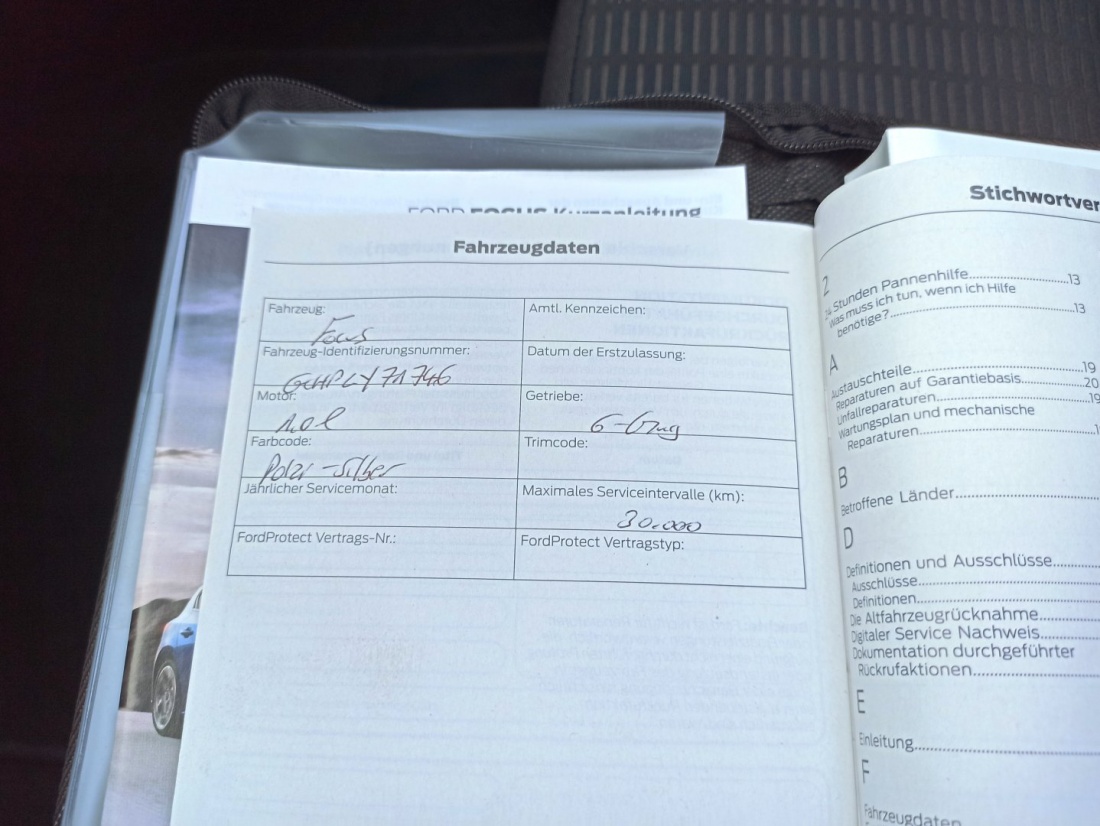 FORD FOCUS Kurzanleitung
Fahrzeugdaten
Fahrzeug:
Focus
Amtl. Kennzeichen:
Fahrzeug-Identifizierungsnummer:
GCHPLY71746
Datum der Erstzulassung:
Motor:
1.0l
Getriebe:
6-Gang
Farbcode:
Polar-Silber
Trimcode:
Jährlicher Servicemonat:
Maximales Serviceintervalle (km):
30.000
FordProtect Vertrags-Nr.:
FordProtect Vertragstyp:
Stichwortver
2
24 Stunden Pannenhilfe..........13
Was muss ich tun, wenn ich Hilfe
benötige?..........13
A
Austauschteile..........19
Reparaturen auf Garantiebasis..........20
Unfallreparaturen..........19
Wartungsplan und mechanische
Reparaturen..........
B
Betroffene Länder..........
D
Definitionen und Ausschlüsse..........
Ausschlüsse..........
Definitionen..........
Die Altfahrzeugrücknahme..........
Digitaler Service Nachweis..........
Dokumentation durchgeführter
Rückrufaktionen..........
E
Einleitung..........
F
Fahrzeugdaten